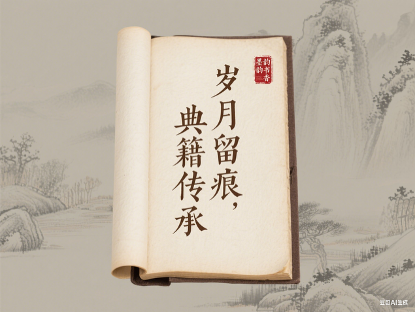 岁月留痕，
典籍传承
韵书香
墨韵
豆包AI生成